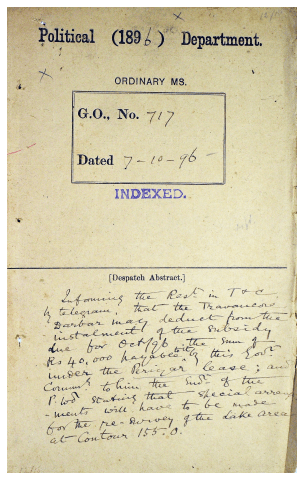 Political (1896) Department.
ORDINARY MS.
G.O., No. 717
Dated 7-10-96-
INDEXED.
[Despatch Abstract.]
Informing the Resᵗ in T & C
by telegram, that the Travancore
Darbar may deduct from the
instalment of the subsidy
due for Oct/96 the sum of
Rs 40,000 payable by this Govᵗ
under the Periyar lease; and
Communᵍ to him the Endᵗ of the
P.W.D. stating that special arrange
-ments will have to be made
for the re-survey of the Lake area
at Contour 155.0.